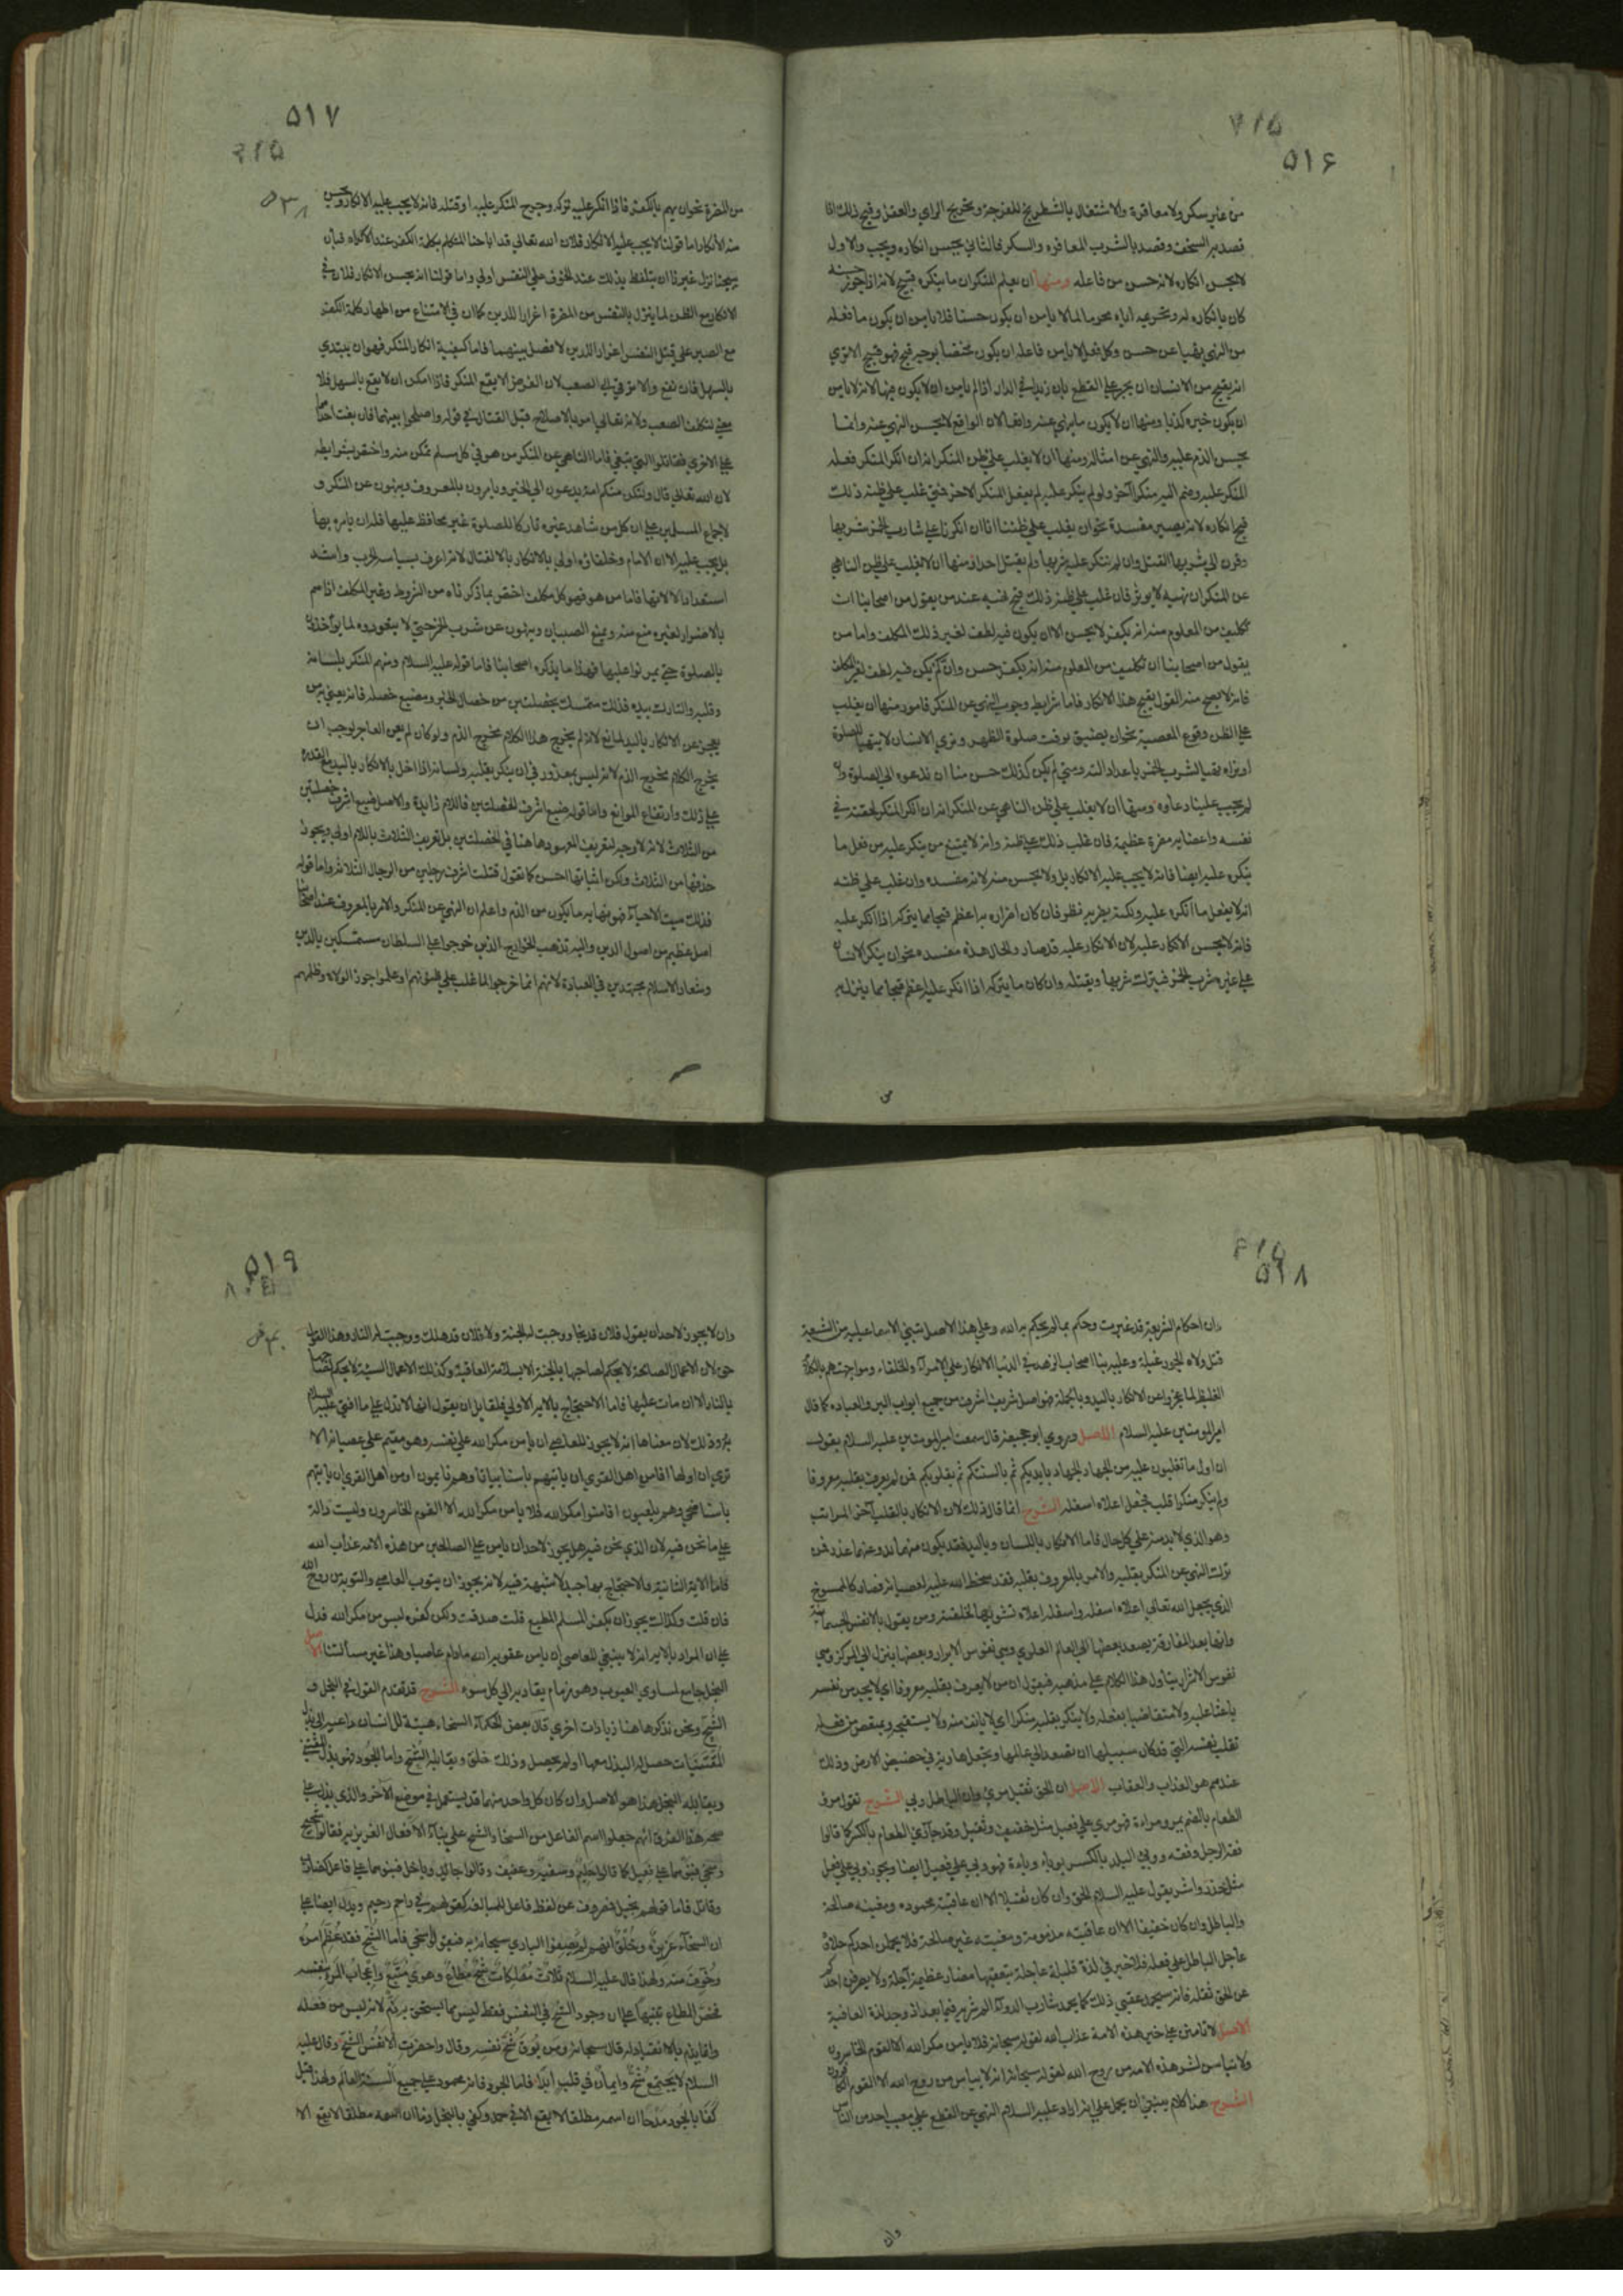 ٥١٦
من غير سكر ولا معاقرة والاشتغال بالشطرنج للفرجة وتخريج الراي والعقل وقبح ذلك اذا
قصد به السخف وقصد بالشرب المعاقره والسكر فالثاني يحسن انكاره ويجب والاول
لا يحسن انكاره لانه حسن من فاعله ومنها ان يعلم المنكر ان ما ينكره قبيح لانه اذا جوز حسنه
كان بانكاره له وتحريمه اياه محرما لما لا يامن ان يكون حسنا فلا يامن ان يكون ما فعله
من النهي نهيا عن حسن وكل فعل لا يامن فاعله ان يكون مختصا بوجه قبح فهو قبيح الا تري
انه يقبح من الانسان ان يخبر علي القطع بان زيدا في الدار اذا لم يامن ان لا يكون فيها لانه لا يامن
ان يكون خبره كذبا ومنها ان لا يكون ما ينهي عنه واقعا لان الواقع لا يحسن النهي عنه وانما
يحسن الذم عليه والنهي عن امثاله ومنها ان لا يغلب علي ظن المنكر انه ان انكر المنكر فعله
المنكر عليه وضم اليه منكرا آخر ولو لم ينكر عليه لم يفعل المنكر الاخر فمتي غلب علي ظنه ذلك
قبح انكاره لانه يصير مفسدة نحو ان يغلب علي ظننا انا ان انكرنا علي شارب الخمر شربها
وقرن الي شربها القتل وان لم ننكر عليه شربها ولم يقتل احدا ومنها ان لا يغلب علي ظن الناهي
عن المنكر ان نهيه لا يوثر فان غلب علي ظنه ذلك قبح نهيه عند من يقول من اصحابنا ان
تكليف من المعلوم منه انه يكفر لا يحسن الا ان يكون فيه لطف لغير ذلك المكلف واما من
يقول من اصحابنا ان تكليف من المعلوم منه انه يكفر حسن وان لم يكن فيه لطف لغير المكلف
فانه لا يصح منه القول بقبح هذا الانكار فاما شرايط وجوب النهي عن المنكر فامور منها ان يغلب
علي الظن وقوع المعصية نحو ان يضيق وقت صلوة الظهر ونري الانسان لا يتهيا للصلوة
او نراه تهيا لشرب الخمر باعداد آلته ومتي لم يكن كذلك حسن منا ان ندعوه الي الصلوة وان
لم يجب علينا دعاوه ومنها ان لا يغلب علي ظن الناهي عن المنكر انه ان انكر المنكر لحقته في
نفسه واعضايه مضرة عظيمة فان غلب ذلك علي ظنه وانه لا يمتنع من ينكر عليه من فعل ما
ينكره عليه ايضا فانه لا يجب عليه الانكار بل ولا يحسن منه لانه مفسده وان غلب علي ظنه
انه لا يفعل ما انكره عليه ولكنه يضر به نظر فان كان اضراره به اعظم قبحا مما يتركه اذا انكر عليه
فانه لا يحسن الانكار عليه لان الانكار عليه قد صار والحال هذه مفسده نحو ان ينكر الانسان
علي غيره شرب الخمر فيترك شربها ويقتله وان كان ما يتركه اذا انكر عليه اعظم قبحا مما ينزل به
من
٥١٧
من المضرة نحو ان يهم بالكفر فاذا انكر عليه تركه وجرح المنكر عليه او قتله فانه لا يجب عليه الانكار ويحسن
منه الانكار اما قولنا لا يجب عليه الانكار فلان الله تعالي قد اباحنا التكلم بكلمة الكفر عند الاكراه فبان
يبيحنا ترك غيرنا ان يتلفظ بذلك عند الخوف علي النفس اولي واما قولنا انه يحسن الانكار فلان في
الانكار مع الظن لما ينزل بالنفس من المضرة اعزازا للدين كما ان في الامتناع من اظهار كلمة الكفر
مع الصبر علي قتل النفس اعزاز الدين لا فصل بينهما فاما كيفية انكار المنكر فهو ان يبتدي
بالسهل فان نفع والا ترقي الي الصعب لان الغرض الا يقع المنكر فاذا امكن ان لا يقع بالسهل فلا
معني لتكلف الصعب ولانه تعالي امر بالاصلاح قبل القتال في قوله واصلحوا بينهما فان بغت احداهما
علي الاخري فقاتلوا التي تبغي فاما الناهي عن المنكر من هو فهو كل مسلم تمكن منه واختص بشرايطه
لان الله تعالي قال ولتكن منكم امة يدعون الي الخير ويامرون بالمعروف وينهون عن المنكر و
لاجماع المسلمين علي ان كل من شاهد غيره تاركا للصلوة غير محافظ عليها فله ان يامره بها
بل يجب عليه الا ان الامام وخلفاؤه اولي بالانكار بالقتال لانه اعرف بسياسة الحرب واشد
استعدادا لالاتها فاما من هو فهو كل مكلف اختص بما ذكرناه من الشروط وغير المكلف اذا هم
بالاضرار لغيره منع منه ويمنع الصبيان وينهون عن شرب الخمر حتي لا يتعودوه كما يؤاخذون
بالصلوة حتي يمرنوا عليها فهذا ما يذكره اصحابنا فاما قوله عليه السلام ومنهم المنكر بلسانه
وقلبه والتارك بيده فذلك متمسك بخصلتين من خصال الخير ومضيع خصله فانه يعني به من
يعجز عن الانكار باليد لمانع لانه لم يخرج هذا الكلام مخرج الذم ولو كان لم يعن العاجز لوجب ان
يخرج الكلام مخرج الذم لانه ليس بمعذور في ان ينكر بقلبه ولسانه اذا اخل بالانكار باليد مع القدره
علي ذلك وارتفاع الموانع واما قوله ضيع اشرف الخصلتين فاللام زايدة والاصل ضيع اشرف خصلتين
من الثلاث لانه لا وجه لتعريف المعهود هاهنا في الخصلتين بل تعريف الثلاث باللام اولي ويجوز
حذفها من الثلاث ولكن اثباتها احسن كما تقول قتلت اشرف رجلين من الرجال الثلاثة واما قوله
فذلك ميت الاحياء فهو نهاية ما يكون من الذم واعلم ان النهي عن المنكر والامر بالمعروف عند اصحابنا
اصل عظيم من اصول الدين واليه تذهب الخوارج الذين خرجوا علي السلطان متمسكين بالدين
وشعار الاسلام مجتهدين في العبادة لانهم انما خرجوا لما غلب علي ظنونهم او علموا جور الولاه وظلمهم
٥١٨
وان احكام الشريعة قد غيرت وحكم بما لم يحكم به الله وعلي هذا الاصل تبني الاسماعيلية من الشيعة
قتل ولاه الجور غيلة وعليه بنا اصحاب الزهد في الدنيا الانكار علي الامرآء والخلفاء ومواجهتهم بالكلام
الغليظ لما عجزوا عن الانكار باليد وبالجملة فهو اصل شريف اشرف من جميع ابواب البر والعباده كما قال
امير المومنين عليه السلام الاصل وروي ابو جحيفة قال سمعت امير المومنين عليه السلام يقول
ان اول ما تغلبون عليه من الجهاد الجهاد بايديكم ثم بالسنتكم ثم بقلوبكم فمن لم يعرف بقلبه معروفا
ولم ينكر منكرا قلب فجعل اعلاه اسفله الشرح انما قال ذلك لان الانكار بالقلب آخر المراتب
وهو الذي لا بد منه علي كل حال فاما الانكار باللسان وباليد فقد يكون منهما بد وعنهما عذر فمن
ترك النهي عن المنكر بقلبه والامر بالمعروف بقلبه فقد سخط الله عليه لعصيانه فصار كالممسوخ
الذي يجعل الله تعالي اعلاه اسفله واسفله اعلاه تشويها لخلقته ومن يقول بالانفس الجسمانية
وانها بعد المفارقة يصعد بعضها الي العالم العلوي وهي نفوس الابرار وبعضها ينزل الي المركز وهي
نفوس الاشرار يتاول هذا الكلام علي مذهبه فيقول ان من لا يعرف بقلبه معروفا اي لا يجد من نفسه
باعثا عليه ولا متقاضيا بفعله ولا ينكر بقلبه منكرا اي لا يانف منه ولا يستقبحه ويمتعض من فعله
تقلب نفسه التي قد كان سبيلها ان تصعد الي عالمها ويجعل هاوية في حضيض الارض وذلك
عندهم هو العذاب والعقاب الاصل ان الحق ثقيل مري وان الباطل وبي الشرح تقول مرؤ
الطعام بالضم يمرؤ مراءة فهو مري علي فعيل مثل خفيف وثقيل وقد جآء مري الطعام بالكسر كما قالوا
فقه الرجل وفقه ووبئ البلد بالكسر يوبا وباءة فهو وبي علي فعيل ايضا ويجوز وبي علي فعل
مثل حذر واشر يقول عليه السلام الحق وان كان ثقيلا الا ان عاقبته محموده ومغبته صالحة
والباطل وان كان خفيفا الا ان عاقبته مذمومة ومغبته غير صالحة فلا يحملن احدكم حلاوة
عاجل الباطل علي فعله فلا خير في لذة قليلة عاجلة يتعقبها مضار عظيمة آجلة ولا يصرفن احدكم
عن الحق ثقله فانه سيحمد عقبي ذلك كما يحمد شارب الدوآء المر شربه فيما بعد اذ وجد لذة العافية
الاصل لا تامنن علي خير هذه الامة عذاب الله لقوله سبحانه فلا يامن مكر الله الا القوم الخاسرون
ولا تياسن لشر هذه الامه من روح الله لقوله سبحانه انه لا يياس من روح الله الا القوم الكافرون
الشرح هذا كلام ينبغي ان يحمل علي انه اراد عليه السلام النهي عن القطع علي مغيب احد من الناس
وان
٥١٩
وان لا يجوز لاحد ان يقول فلان قد نجا ووجبت له الجنة ولا فلان قد هلك ووجبت له النار وهذا القول
حق لان الاعمال الصالحة لا يحكم لصاحبها بالجنة الا بسلامة العاقبة وكذلك الاعمال السيئة لا يحكم لصاحبها
بالنار الا ان مات عليها فاما الاحتجاج بالاية الاولي فلقايل ان يقول انها لا تدل علي ما افتي عليه السلام
به وذلك لان معناها انه لا يجوز للعاصي ان يامن مكر الله علي نفسه وهو مقيم علي عصيانه الا
تري ان اولها افامن اهل القري ان ياتيهم باسنا بياتا وهم نايمون او امن اهل القري ان ياتيهم
باسنا ضحي وهم يلعبون افامنوا مكر الله فلا يامن مكر الله الا القوم الخاسرون وليست دالة
علي ما نحن فيه لان الذي نحن فيه هل يجوز لاحد ان يامن علي الصالحين من هذه الامة عذاب الله
فاما الاية الثانية فالاحتجاج بها جيد لا شبهة فيه لانه يجوز ان يتوب العاصي والتوبة من روح الله
فان قلت وكذلك يجوز ان يكفر المسلم المطيع قلت صدقت ولكن كفره ليس من مكر الله فدل
علي ان المراد بالاية انه لا ينبغي للعاصي ان يامن عقوبة الله ما دام عاصيا وهذا غير مسألتنا الاصل
البخل جامع لمساوي العيوب وهو زمام يقاد به الي كل سوء الشرح قد تقدم القول في البخل و
الشح ونحن نذكر هاهنا زيادات اخري قال بعض الحكمآء السخاء هيئة للانسان داعية الي بذل
المقتنيات حصل له البذل معها او لم يحصل وذلك خلق ويقابله الشح واما الجود فهو بذل المقتني
ويقابله البخل هذا هو الاصل وان كان كل واحد منهما قد يستعمل في موضع الآخر والذي يدل علي
صحه هذا الفرق انهم جعلوا اسم الفاعل من السخا والشح علي بنآء الافعال الغريزية فقالوا شحيح
وسخي فبنوهما علي فعيل كما قالوا حليم وسفيه وعفيف وقالوا جايد وباخل فبنوهما علي فاعل كضارب
وقاتل فاما قولهم بخيل فمصروف عن لفظ فاعل للمبالغه كقولهم في راحم رحيم ويدل ايضا علي
ان السخآء غريزة وخلق انهم لم يصفوا الباري سبحانه به فيقولوا سخي فاما الشح فقد عظم امره
وخوف منه ولهذا قال عليه السلام ثلاث مهلكات شح مطاع وهوي متبع واعجاب المرء بنفسه
فخص المطاع تنبيها علي ان وجود الشح في النفس فقط ليس مما يستحق به ذم لانه ليس من فعله
وانما يذم بالانقياد له قال سبحانه ومن يوق شح نفسه وقال واحضرت الانفس الشح وقال عليه
السلام لا يجتمع شح وايمان في قلب ابدا فاما الجود فانه محمود علي جميع السنة العالم ولهذا قيل
كفا بالجود مدحا ان اسمه مطلقا لا يقع الا في حمد وكفي بالبخل ذما ان اسمه مطلقا لا يقع الا